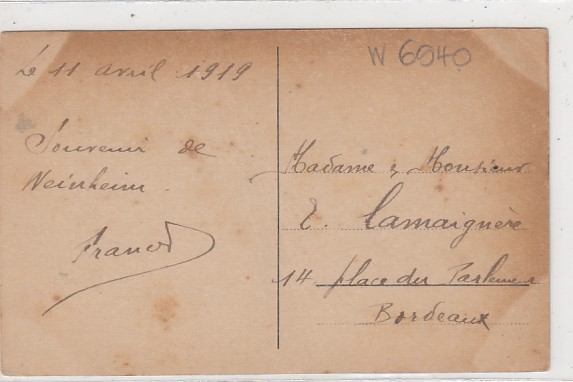 Le 11 avril 1919
Souvenir de
Weinheim.
W 6940
Madame & Monsieur
E. Lamaignère
14 place du Parlement
Bordeaux